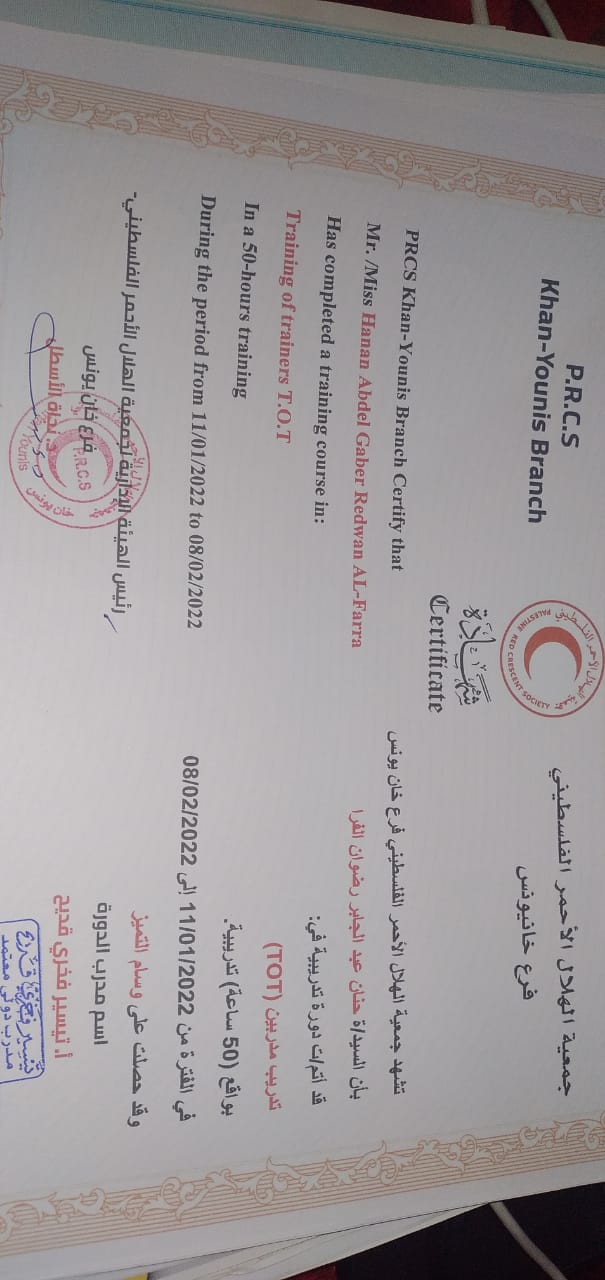 P.R.C.S
Khan-Younis Branch
جمعية الهلال الأحمر الفلسطيني
فرع خانيونس
جمعية الهلال الأحمر الفلسطيني
PALESTINE RED CRESCENT SOCIETY
شهادة
Certificate
PRCS Khan-Younis Branch Certify that
Mr. /Miss Hanan Abdel Gaber Redwan AL-Farra
Has completed a training course in:
Training of trainers T.O.T
In a 50-hours training
During the period from 11/01/2022 to 08/02/2022
تشهد جمعية الهلال الأحمر الفلسطيني فرع خان يونس
بأن السيد/ة حنان عبد الجابر رضوان الفرا
قد أتم/ت دورة تدريبية في:
تدريب مدربين (TOT)
بواقع (50 ساعة) تدريبية.
في الفترة من 11/01/2022 إلى 08/02/2022
وقد حصلت على وسام التميز
رئيس الهيئة الإدارية لجمعية الهلال الأحمر الفلسطيني-
فرع خان يونس
د. نجاة الأسطل
P.R.C.S
Younis
خان يونس
اسم مدرب الدورة
أ. تيسير فخري قديح
تيسير فخري قديح
مدرب دولي معتمد